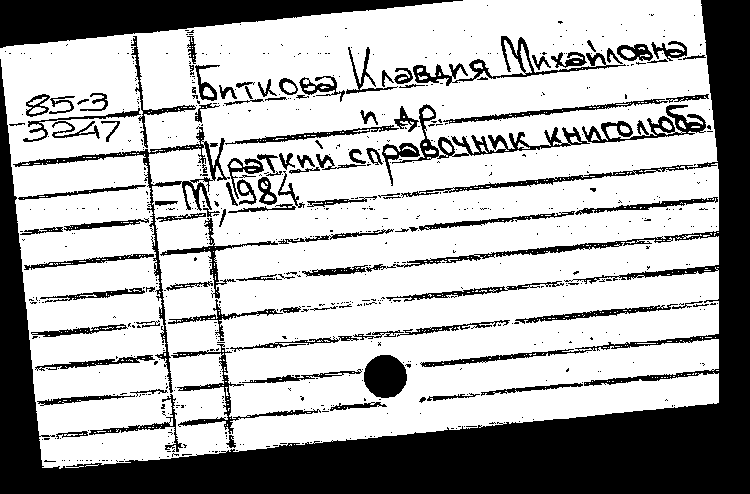 85-3
3247
Биткова, Клавдия Михайловна
и др
Краткий справочник книголюба.
– М., 1984